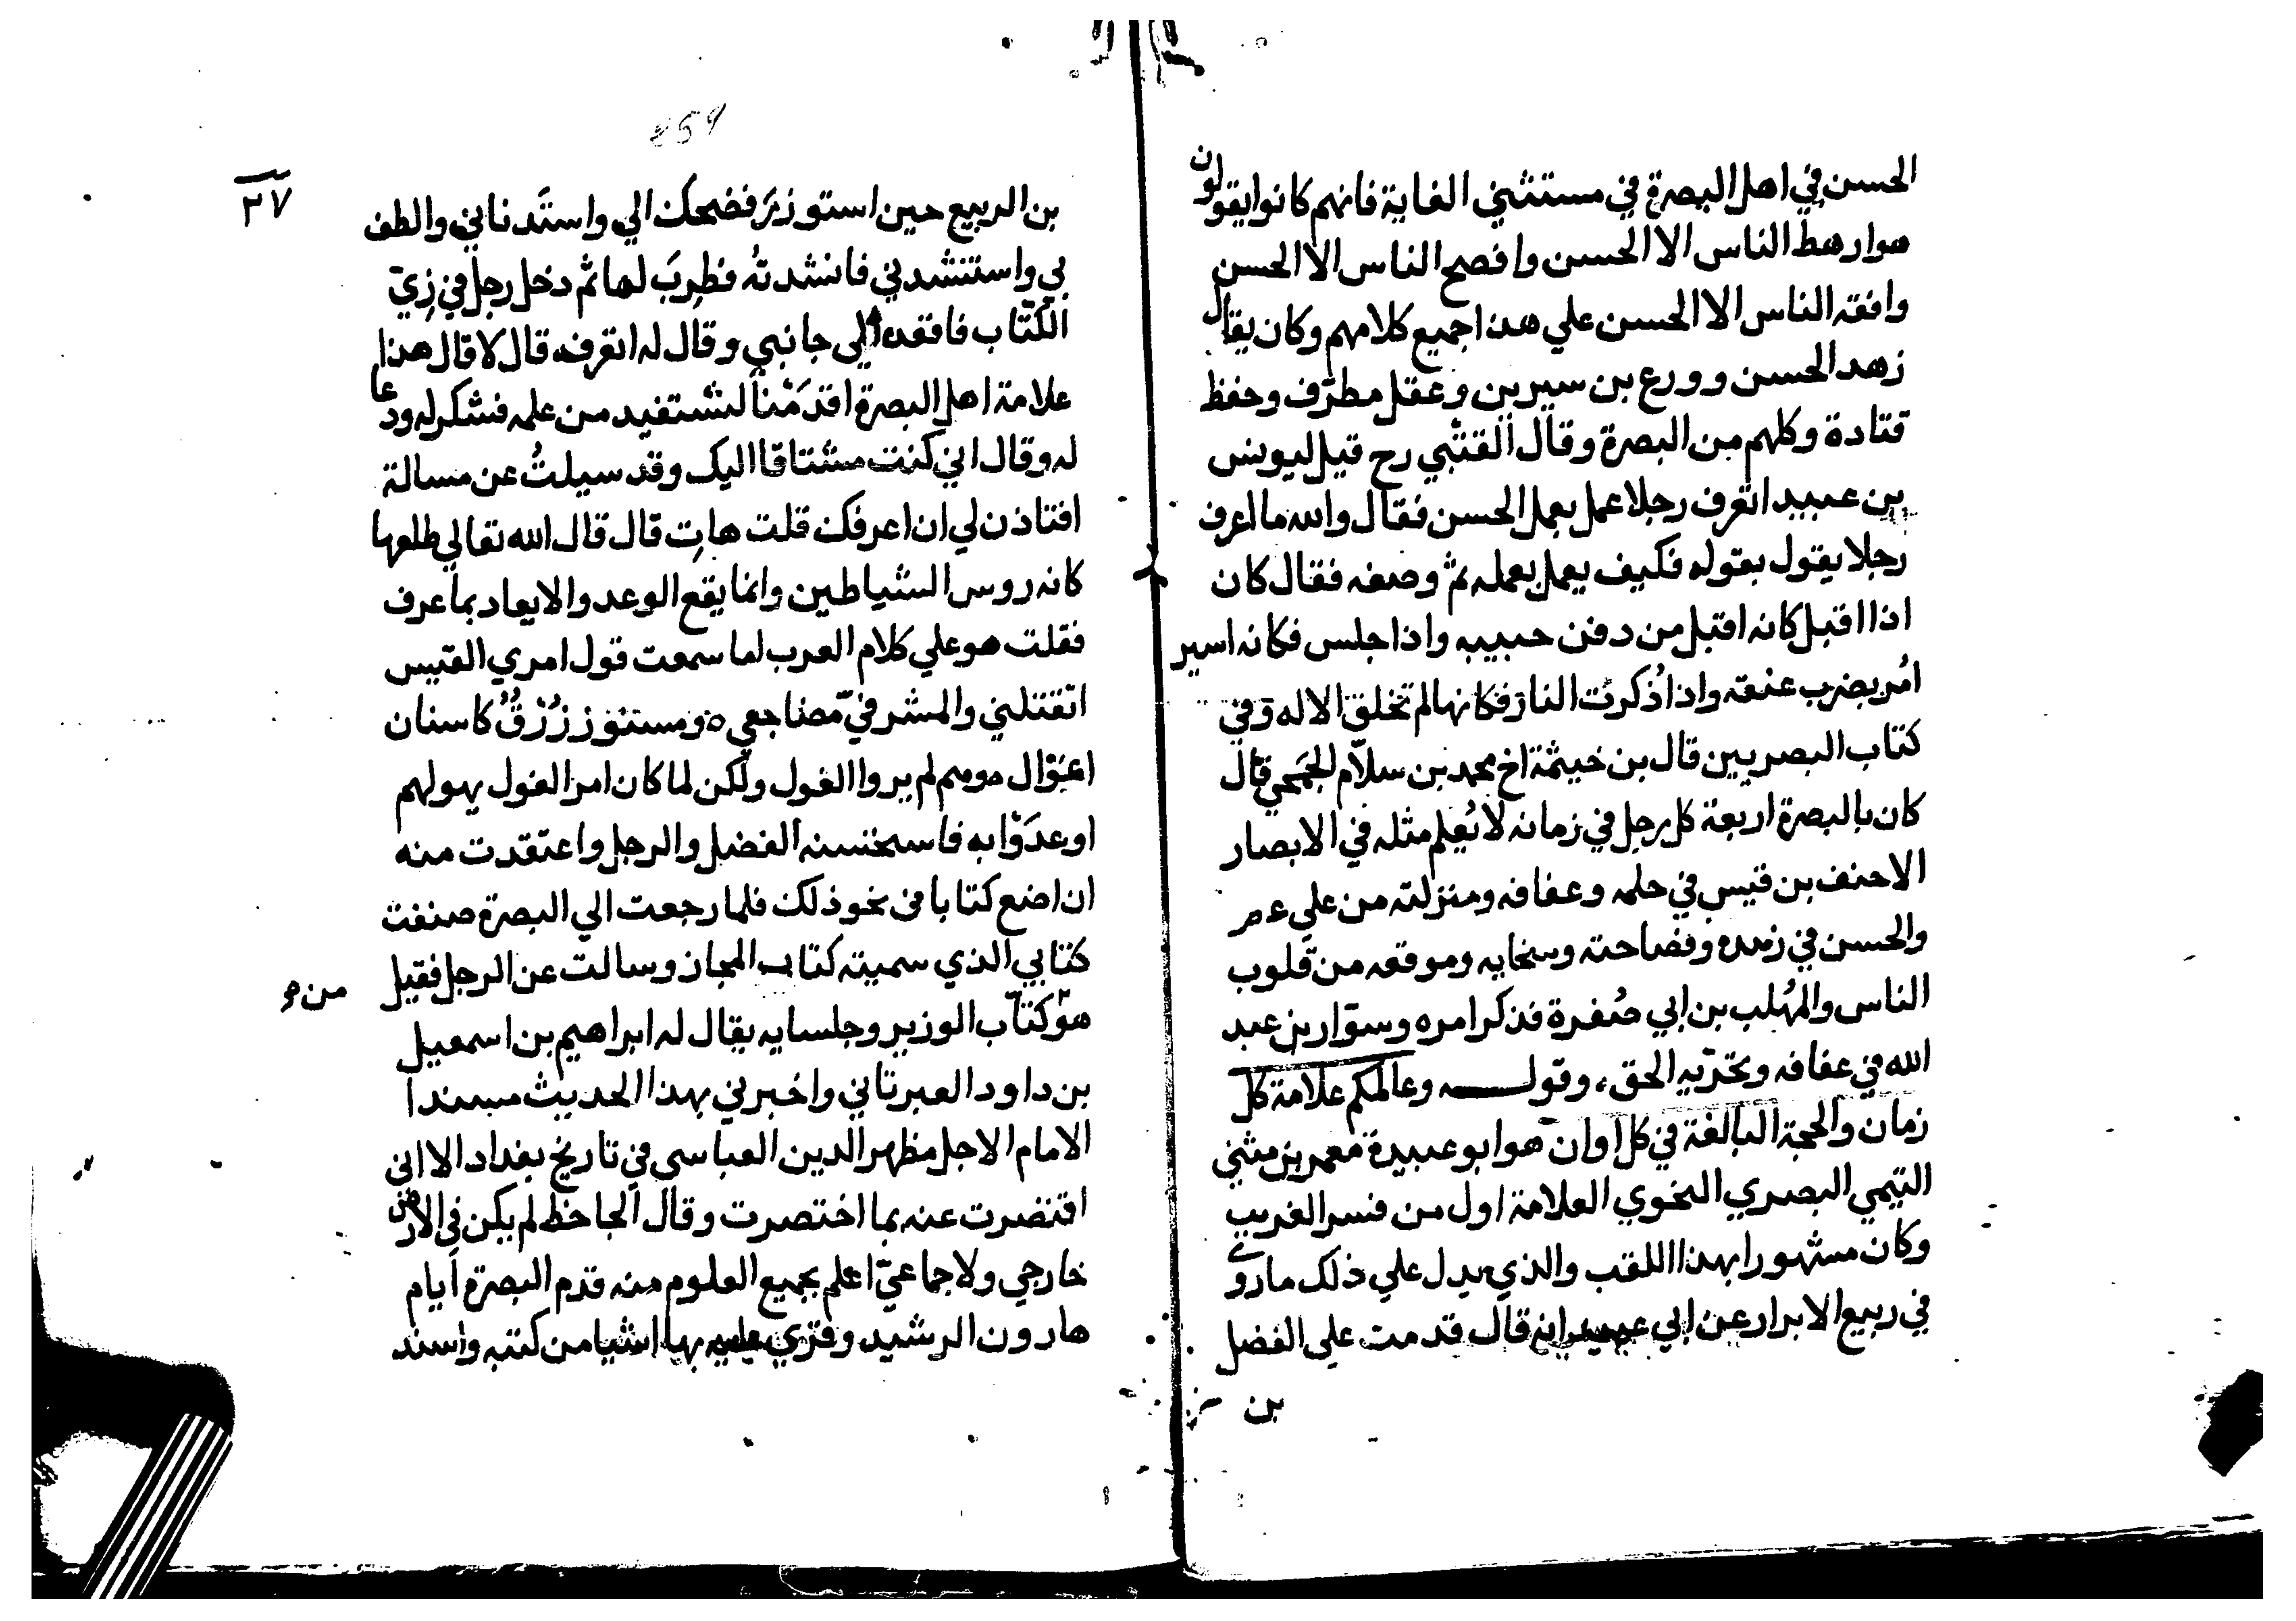 الحسن في اهل البصرة في مستثني الغاية فانهم كانوا يقولون
هوارهط الناس الا الحسن وافصح الناس الا الحسن
وافقه الناس الا الحسن علي هذا جميع كلامهم وكان يقال
زهد الحسن وورع بن سيرين وعقل مطرّف وحفظ
قتادة وكلهم من البصرة وقال القتبي رح قيل ليونس
بن عبيد اتعرف رجلا عمل بعمل الحسن فقال والله ما اعرف
رجلا يقول بقوله فكيف يعمل بعمله ثم وصفه فقال كان
اذا اقبل كانه اقبل من دفن حبيبه واذا جلس فكانه اسير
امُر بضرب عنقه واذا ذُكرت النار فكانها لم تخلق الا له وفي
كتاب البصريين قال بن خيثمة اخ محمد بن سلاّم الجُمَحي قال
كان بالبصرة اربعة كل رجل في زمانه لا يُعلم مثله في الابصار
الاحنف بن قيس في حلمه وعفافه ومنزلته من علي عم
والحسن في زهده وفصاحته وسخايه وموقعه من قلوب
الناس والمُهلب بن ابي صُفرة فذكر امره وسوّار بن عبد
الله في عفافه وتحرّيه الحق، وقوله وعالمكم علامة كل
زمان والحجة البالغة في كل اوان هو ابو عبيدة معمر بن مثني
التيمي البصري النحوي العلامة اول من فسر الغريب
وكان مشهورا بهذا اللقب والذي يدل علي ذلك ما روي
في ربيع الابرار عن ابي عبيدة انه قال قدمت علي الفضل
بن
٢٧
بن الربيع حين استوزرَ فضحك الي واستَدناني والطف
بي واستنشدني فانشدتهُ فطرِبَ لها ثم دخل رجل في زِيّ
الكتّاب فاقعده الي جانبي وقال له اتعرفه قال لا قال هذا
علامة اهل البصرة اقدَمْناَ لنستفيد من علمه فشكر له ودعا
له وقال اني كنت مشتاقا اليك وقد سيلتُ عن مسالة
افتاذن لي ان اعرفك قلت هاتِ قال قال الله تعالي طلعها
كانه روس الشياطين وانما يقع الوعد والايعاد بما عرف
فقلت هو علي كلام العرب اما سمعت قول امري القيس
اتقتلني والمشرفيّ مضاجعي ه ومسنونة زُرْقُ كاسنان
اغوال وهم لم يروا الغول ولكن لما كان امر الغول يهولهم
اوعدَوْا به فاستحسنه الفضل والرجل واعتقدت منه
ان اضع كتابا في نحو ذلك فلما رجعت الي البصرة صنفت
كتابي الذي سميته كتاب المجاز وسالت عن الرجل فقيل
من
هو كتاّب الوزير وجلسايه يقال له ابراهيم بن اسمعيل
بن داود العبرتاني واخبرني بهذا الحديث مسندا
الامام الاجل مظهر الدين العباسي في تاريخ بغداد الا اني
اقتصرت عنه بما اختصرت وقال الجاحظ لم يكن في الارض
خارجي ولا جماعيّ اعلم بجميع العلوم منه قدم البصرة ايام
هارون الرشيد وقري عليه بها اشيا من كتبه واسند